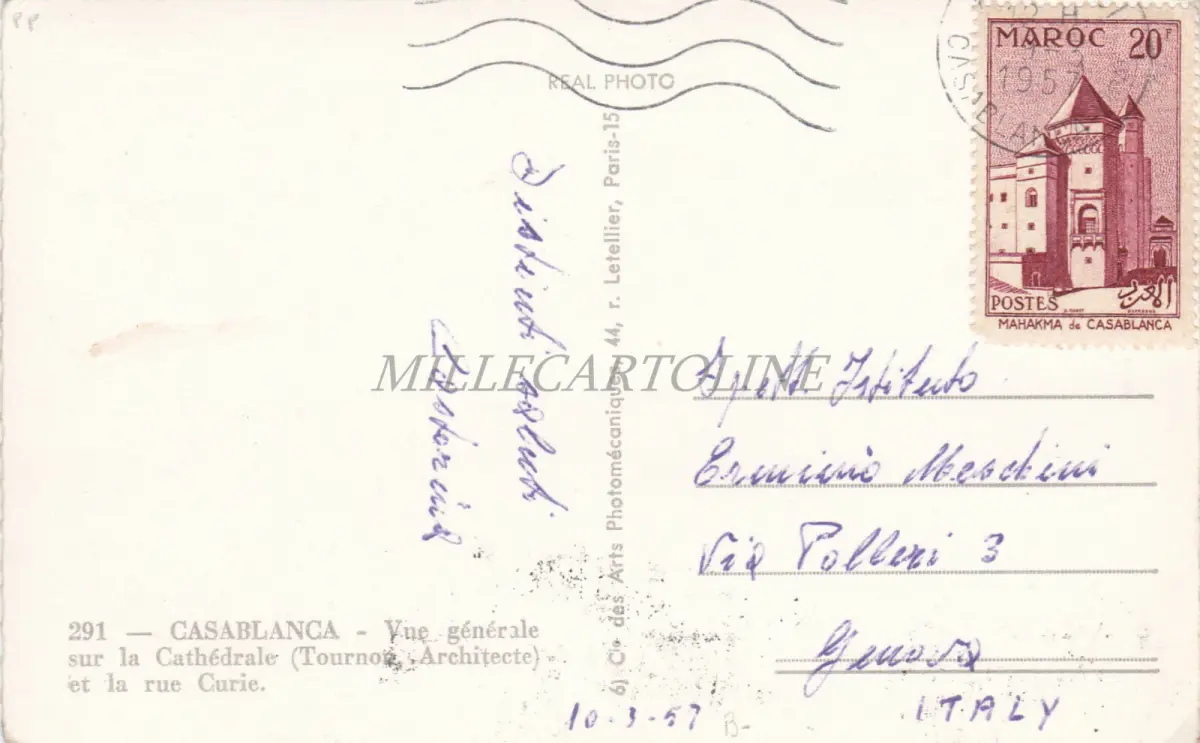 PP
REAL PHOTO
12 H
7-3
1957
CASABLAN
MAROC 20F
POSTES
المغرب
MAHAKMA de CASABLANCA
Distinti saluti
6) Cie des Arts Photomécaniques, 44, r. Letellier, Paris-15
MILLECARTOLINE
Spett. Istituto
Erminio Meschini
Via Polleri 3
Genova
ITALY
291 — CASABLANCA - Vue générale
sur la Cathédrale (Tournon, Architecte)
et la rue Curie.
10-3-57
B-